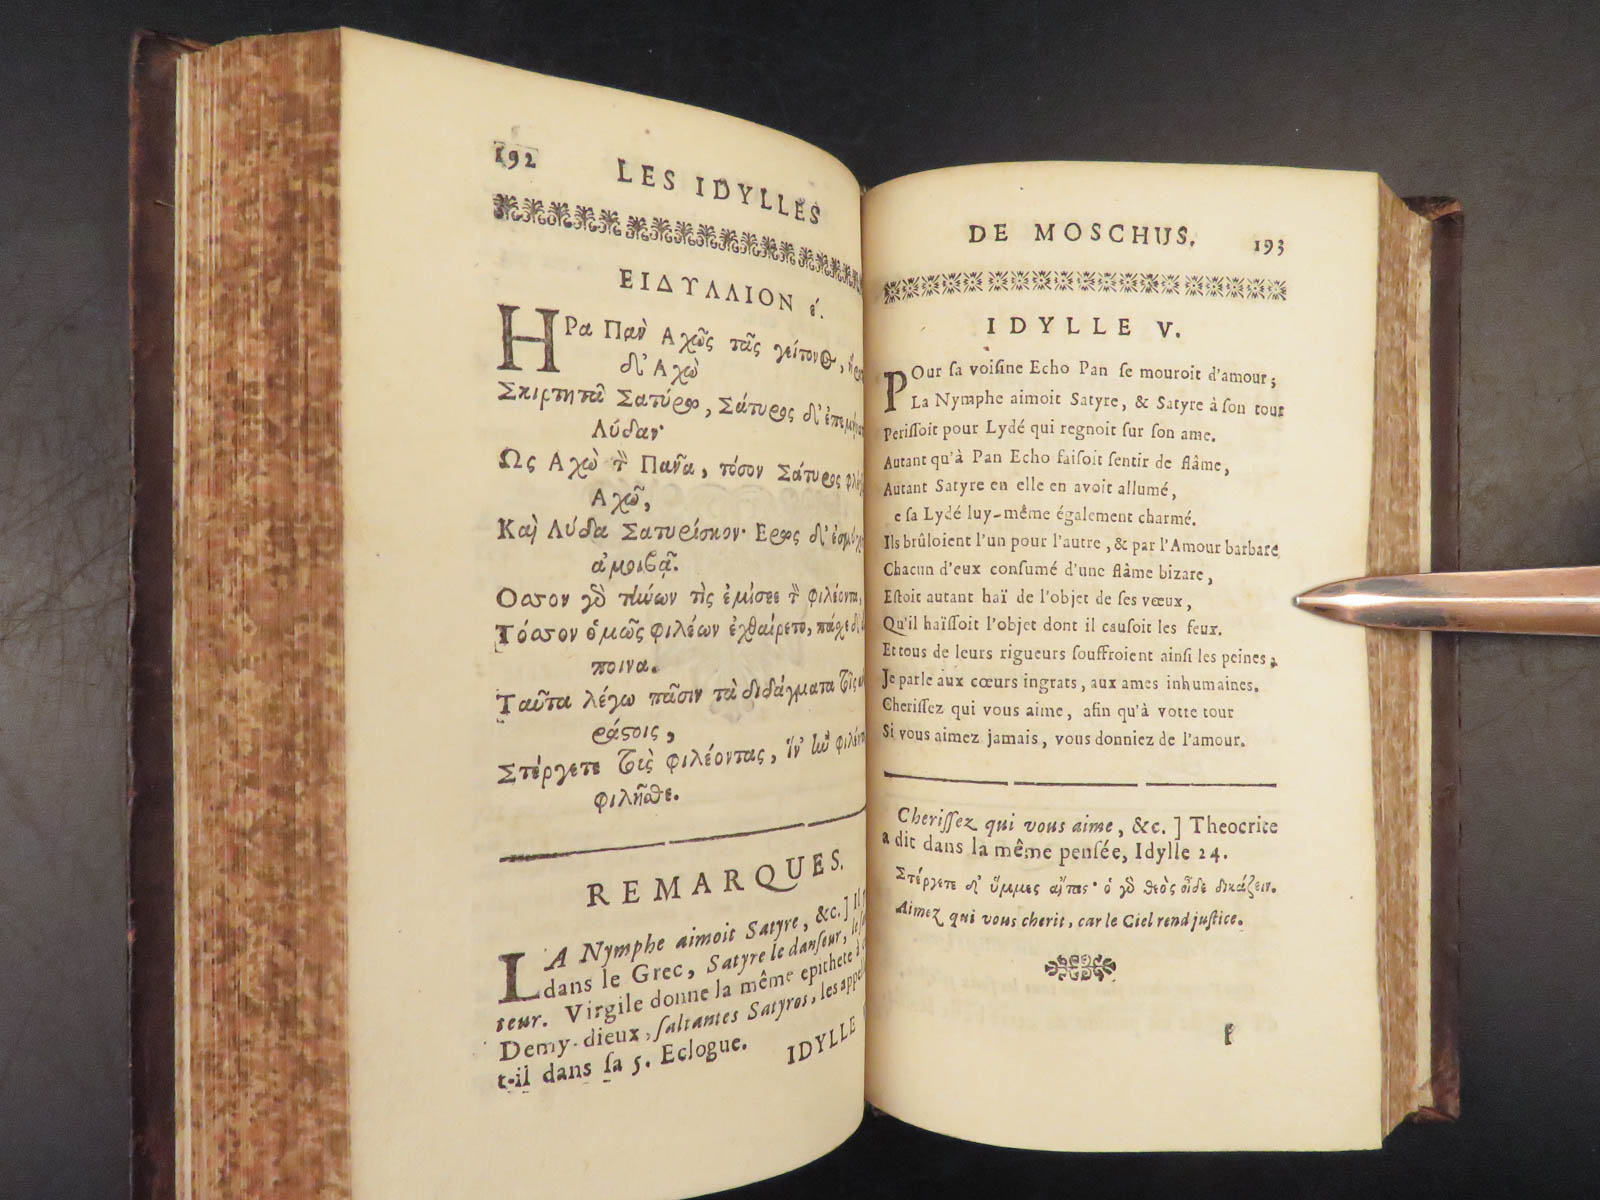 192
LES IDYLLES
ΕΙΔΥΛΛΙΟΝ έ.
ΗΡα Πὰν Αχῶς τᾶς γείτονος,
δ' Αχὼ
Σκιρτητᾶ Σατύρω, Σάτυρος δ'
Λύδαν·
Ως Αχὼ τὸν Πᾶνα, τόσον Σάτυρος
Αχῶ,
Καὶ Λύδα Σατυρίσκον· Ερως δ'
ἀμοιβᾷ.
Οσσον γὸ τήνων τὶς ἐμίσεε τὸν φιλέοντα,
Τόσσον ὁμῶς φιλέων ἐχθαίρετο, πάχε δ'
ποινα.
Ταῦτα λέγω πᾶσιν τὰ διδάγματα τοῖς
ράστοις,
Στέργετε τοὺς φιλέοντας, ἵν' ἢν
φιλῆσθε.
REMARQUES.
LA Nymphe aimoit Satyre, &c.] Il
dans le Grec, Satyre le danseur,
teur. Virgile donne la même epithete
Demy-dieux, ſaltantes Satyros, les
t-il dans ſa 5. Eclogue.
IDYLLE
DE MOSCHUS.
193
IDYLLE V.
POur ſa voiſine Echo Pan ſe mouroit d'amour;
La Nymphe aimoit Satyre, & Satyre à ſon tour
Periſſoit pour Lydé qui regnoit ſur ſon ame.
Autant qu'à Pan Echo faiſoit ſentir de flâme,
Autant Satyre en elle en avoit allumé,
e ſa Lydé luy-même également charmé.
Ils brûloient l'un pour l'autre, & par l'Amour barbare
Chacun d'eux conſumé d'une flâme bizare,
Eſtoit autant haï de l'objet de ſes vœux,
Qu'il haïſſoit l'objet dont il cauſoit les feux.
Et tous de leurs rigueurs ſouffroient ainſi les peines;
Je parle aux cœurs ingrats, aux ames inhumaines.
Cheriſſez qui vous aime, afin qu'à votre tour
Si vous aimez jamais, vous donniez de l'amour.
Cheriſſez qui vous aime, &c. ] Theocrite
a dit dans la même penſée, Idylle 24.
Στέργετε δ' ὔμμες ἀΐτας· ὁ γὸ θεὸς οἶδε δικάζειν.
Aimez qui vous cherit, car le Ciel rend juſtice.